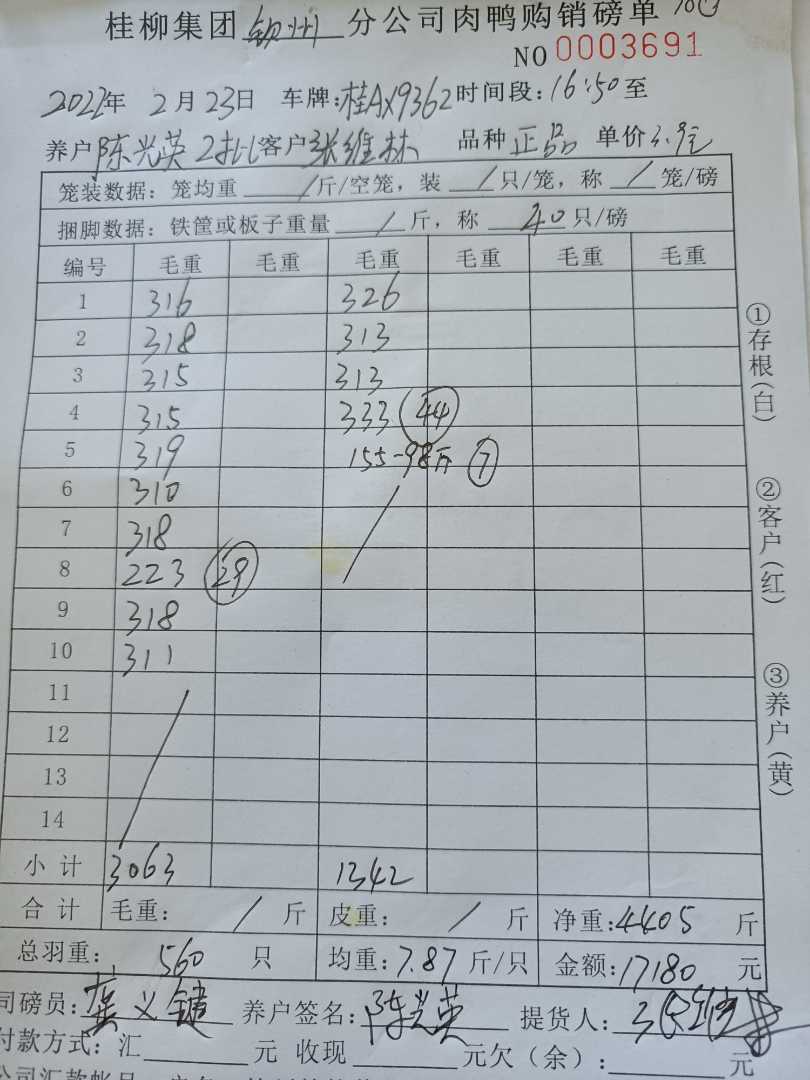 桂柳集团 钦州 分公司肉鸭购销磅单
NO 0003691
2022年 2月23日 车牌:桂AX9362 时间段:16:50至
养户 陈光英 2批 客户 张维林 品种 正品 单价3.9元
笼装数据:笼均重 / 斤/空笼,装 / 只/笼,称 / 笼/磅
捆脚数据:铁筐或板子重量 / 斤,称 40 只/磅
编号 毛重 毛重 毛重 毛重 毛重 毛重
1 316 326
2 318 313
3 315 313
4 315 333 44
5 319 155-98斤 7
6 310
7 318
8 223 29
9 318
10 311
11
12
13
14
小计 3063 1342
合计 毛重: / 斤 皮重: / 斤 净重:4405 斤
总羽重: 560 只 均重:7.87 斤/只 金额:17180 元
司磅员: 养户签名:陈光英 提货人:
付款方式:汇 元 收现 元欠(余): 元
①存根(白)
②客户(红)
③养户(黄)